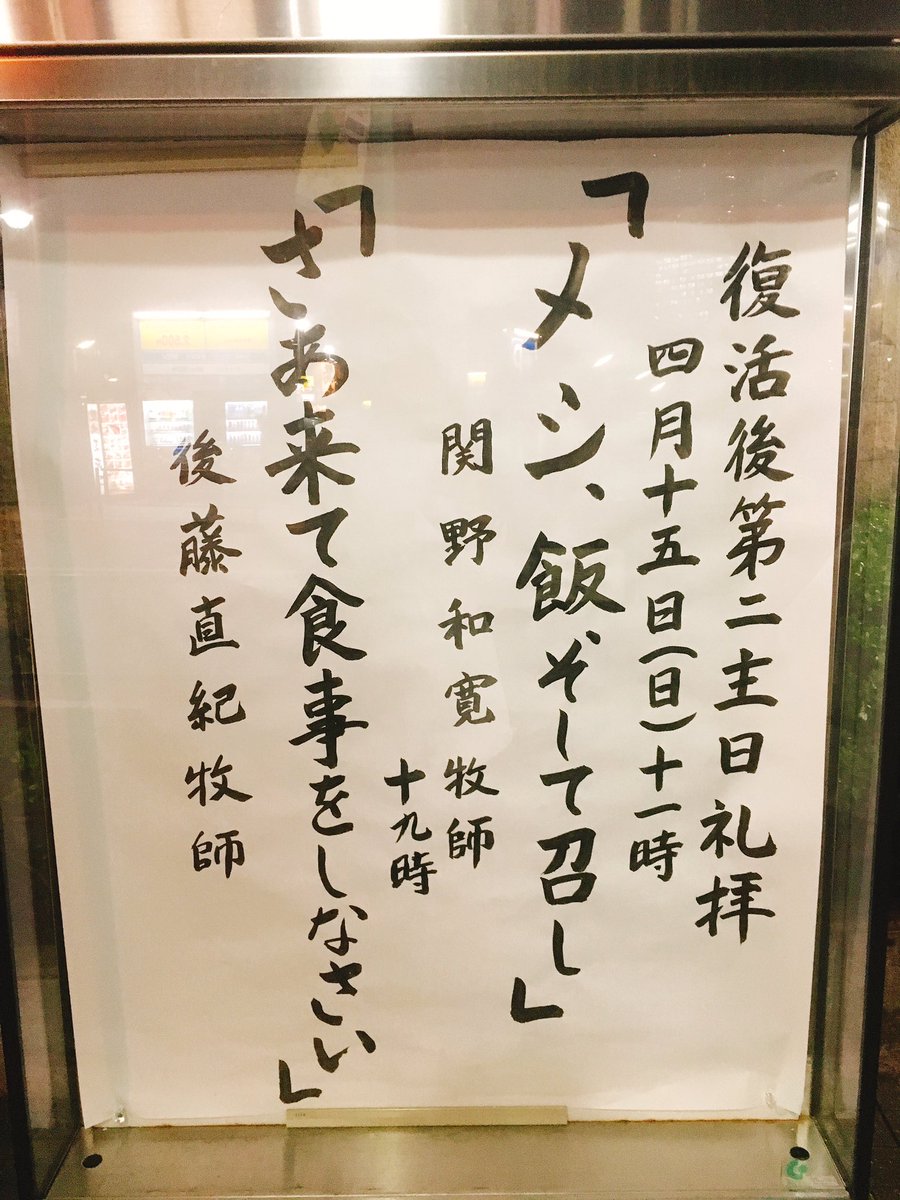 復活後第二主日礼拝
四月十五日(日)十一時
「メシ、飯そして召し」
関野和寛牧師
十九時
「さあ来て食事をしなさい」
後藤直紀牧師